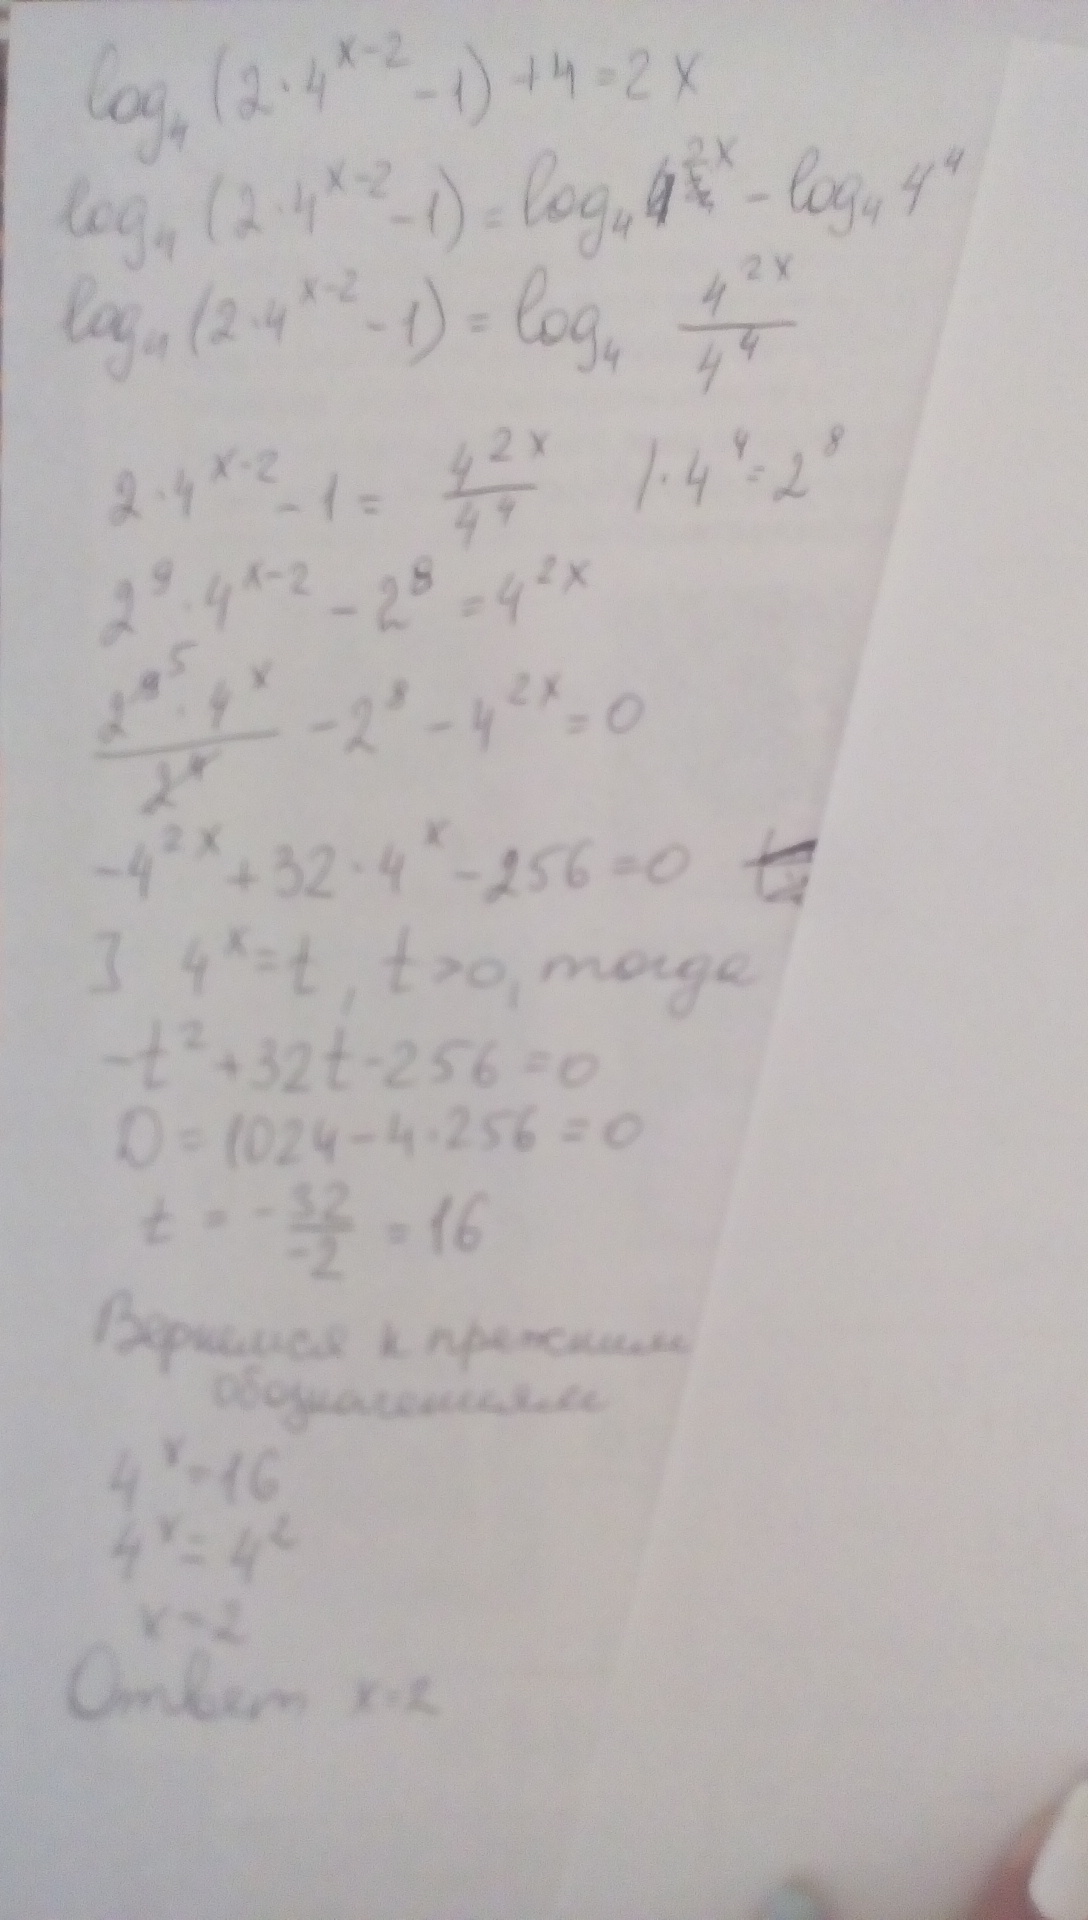 log₄ (2·4^(x-2) - 1) + 4 = 2x
log₄ (2·4^(x-2) - 1) = log₄ 4^(2x) - log₄ 4⁴
log₄ (2·4^(x-2) - 1) = log₄ 4^(2x)/4⁴
2·4^(x-2) - 1 = 4^(2x)/4⁴ |·4⁴ = 2⁸
2⁹·4^(x-2) - 2⁸ = 4^(2x)
2⁹ ⁵·4^x/2⁴ - 2⁸ - 4^(2x) = 0
-4^(2x) + 32·4^x - 256 = 0
] 4^x = t, t > 0, тогда
-t² + 32t - 256 = 0
D = 1024 - 4·256 = 0
t = -32/-2 = 16
Вернемся к прежним
обозначениям
4^x = 16
4^x = 4²
x = 2
Ответ x = 2